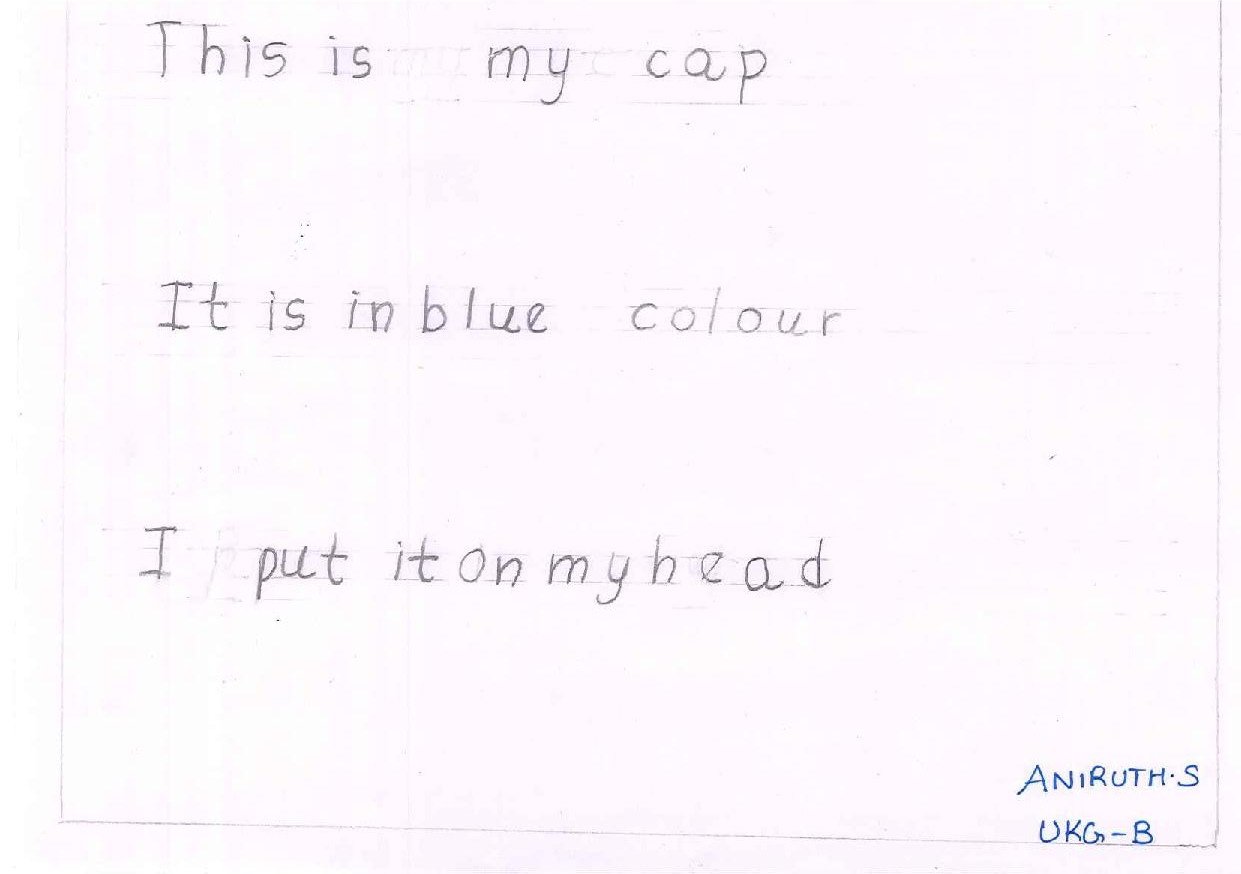 This is my cap
It is in blue colour
I put it on my head
ANIRUTH.S
UKG-B